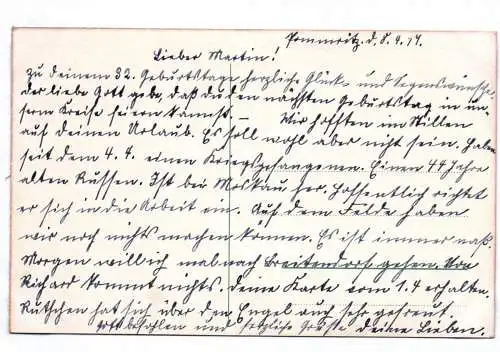 Pommritz, d. 8.4.44.
Lieber Martin!
zu deinem 32. Geburtstage herzliche Glück- und Segenswünsche.
der liebe Gott gebe, daß du den nächsten Geburtstag in un-
serm Kreise feiern kannst. – Wir hofften im Stillen
auf deinen Urlaub. Es soll wohl aber nicht sein. Haben
seit dem 4.4. einen Kriegsgefangenen. Einen 44 Jahre
alten Russen. Ist bei Moskau her. Hoffentlich richtet
er sich in die Arbeit ein. Auf dem Felde haben
wir noch nichts machen können. Es ist immer naß.
Morgen will ich mal nach Breitendorf gehen. Von
Richard kommt nichts. deine Karte vom 1.4 erhalten.
Rutschen hat sich über den Engel auch sehr gefreut.
Gott befohlen und herzliche Grüße deine Lieben.